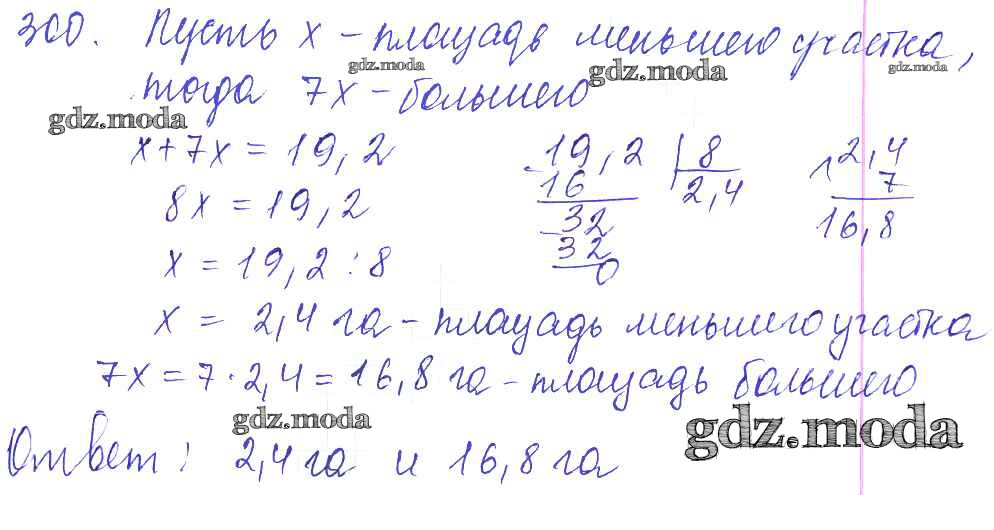 300. Пусть x – площадь меньшего участка,
gdz.moda gdz.moda gdz.moda
тогда 7x – большего
gdz.moda
x + 7x = 19,2
8x = 19,2
x = 19,2 : 8
19,2 | 8
16 2,4
32
32
0
2,4
7
16,8
x = 2,4 га – площадь меньшего участка
7x = 7 · 2,4 = 16,8 га – площадь большего
gdz.moda gdz.moda
Ответ: 2,4 га и 16,8 га